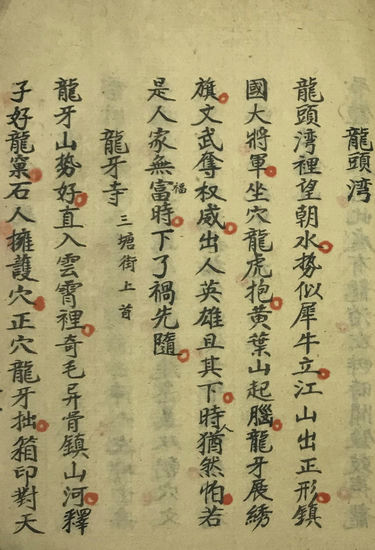 龍頭湾
龍頭湾裡望朝水势似犀牛立江山出正形鎮
國大將軍坐穴龍虎抱黃葉山起腦龍牙展綉
旗文武奪权威出人英雄旦其下時人猶然怕若
是人家無富福時下了禍先隨
龍牙寺 三塘街上首
龍牙山势好直入雲霄裡奇毛异骨鎮山河釋
子好龍窠石人擁護穴正穴龍牙拙箱印對天